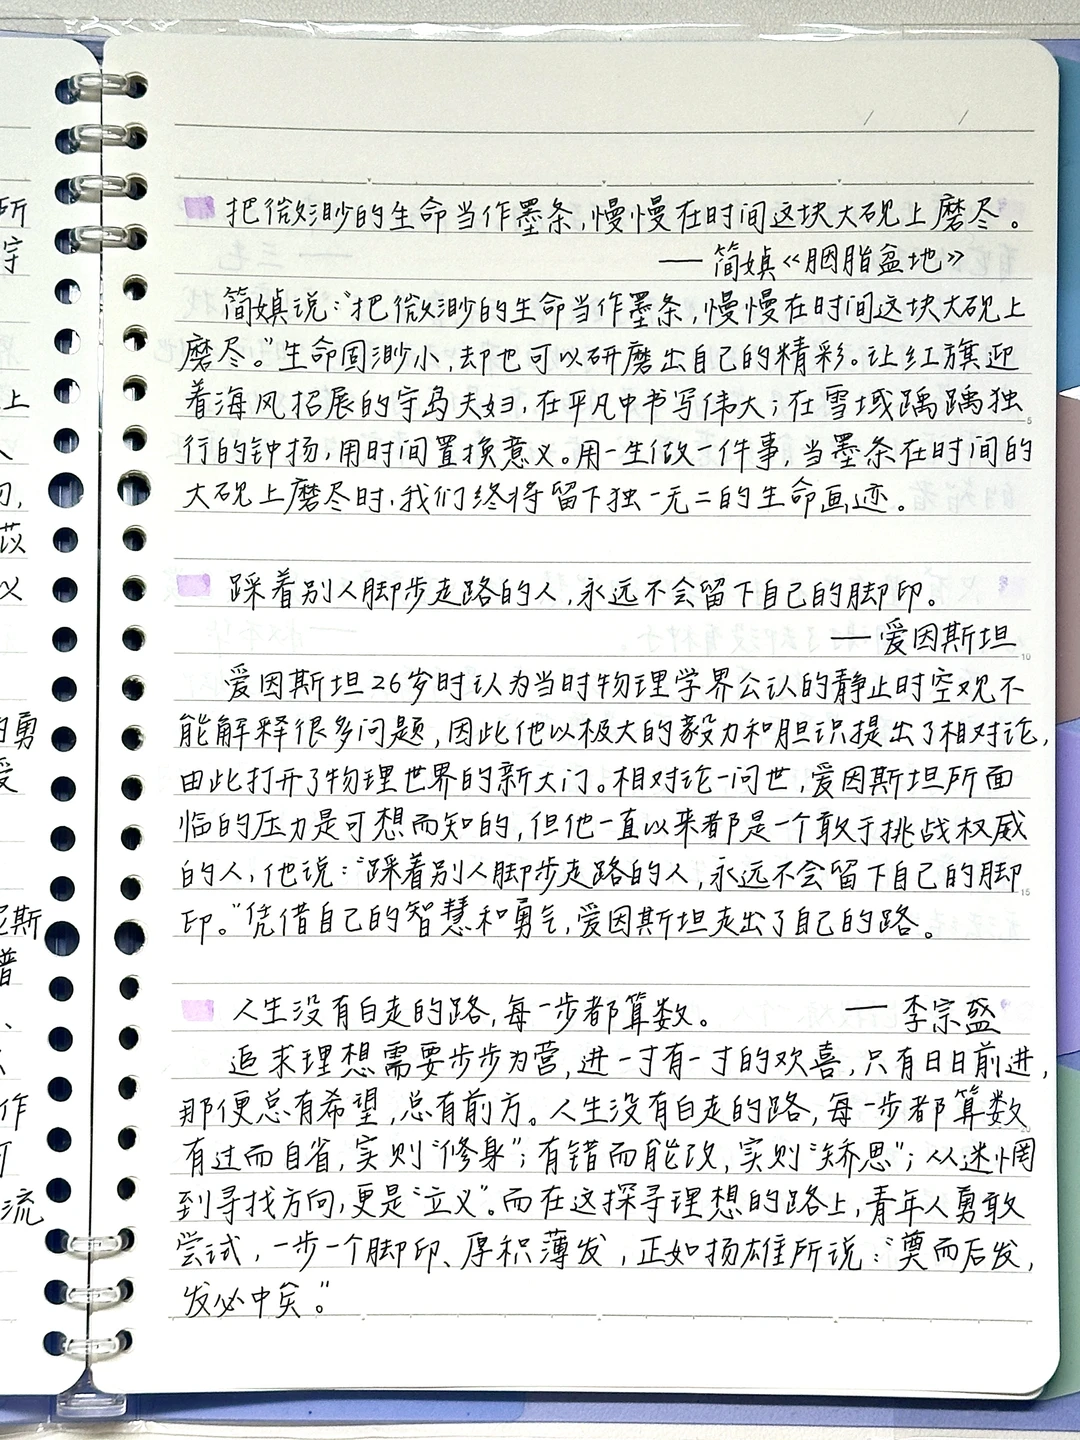 把微渺的生命当作墨条,慢慢在时间这块大砚上磨尽。
——简媜《胭脂盆地》
简媜说:“把微渺的生命当作墨条,慢慢在时间这块大砚上
磨尽。”生命固渺小,却也可以研磨出自己的精彩。让红旗迎
着海风招展的守岛夫妇,在平凡中书写伟大;在雪域踽踽独
行的钟扬,用时间置换意义。用一生做一件事,当墨条在时间的
大砚上磨尽时,我们终将留下独一无二的生命画迹。
踩着别人脚步走路的人,永远不会留下自己的脚印。
——爱因斯坦
爱因斯坦26岁时认为当时物理学界公认的静止时空观不
能解释很多问题,因此他以极大的毅力和胆识提出了相对论,
由此打开了物理世界的新大门。相对论一问世,爱因斯坦所面
临的压力是可想而知的,但他一直以来都是一个敢于挑战权威
的人,他说:“踩着别人脚步走路的人,永远不会留下自己的脚
印。”凭借自己的智慧和勇气,爱因斯坦走出了自己的路。
人生没有白走的路,每一步都算数。 ——李宗盛
追求理想需要步步为营,进一寸有一寸的欢喜,只有日日前进,
那便总有希望,总有前方。人生没有白走的路,每一步都算数
有过而自省,实则“修身”;有错而能改,实则“矫思”;从迷惘
到寻找方向,更是“立义”。而在这探寻理想的路上,青年人勇敢
尝试,一步一个脚印、厚积薄发,正如扬雄所说:“奠而后发,
发必中矣。”